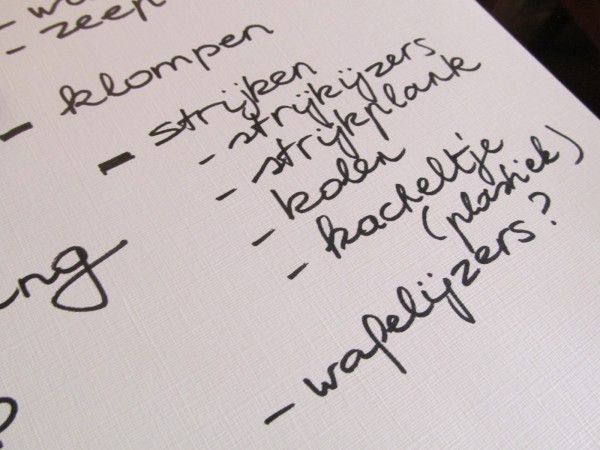 - zeep
- klompen
- strijken
- strijkijzers
- strijkplank
- kolen
- kacheltje
(plastiek)
- wafelijzers?